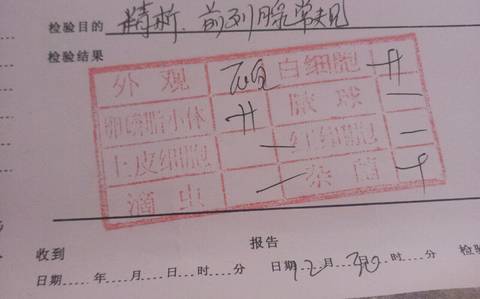 检验目的 精析.前列腺常规
检验结果
外观 白细胞 卄
卵磷脂小体 卄 脓球 —
上皮细胞 — 红细胞 —
滴虫 — 杂菌 +
收到 报告
日期....年....月....日...时....分 日期12月30日.时....分 检验